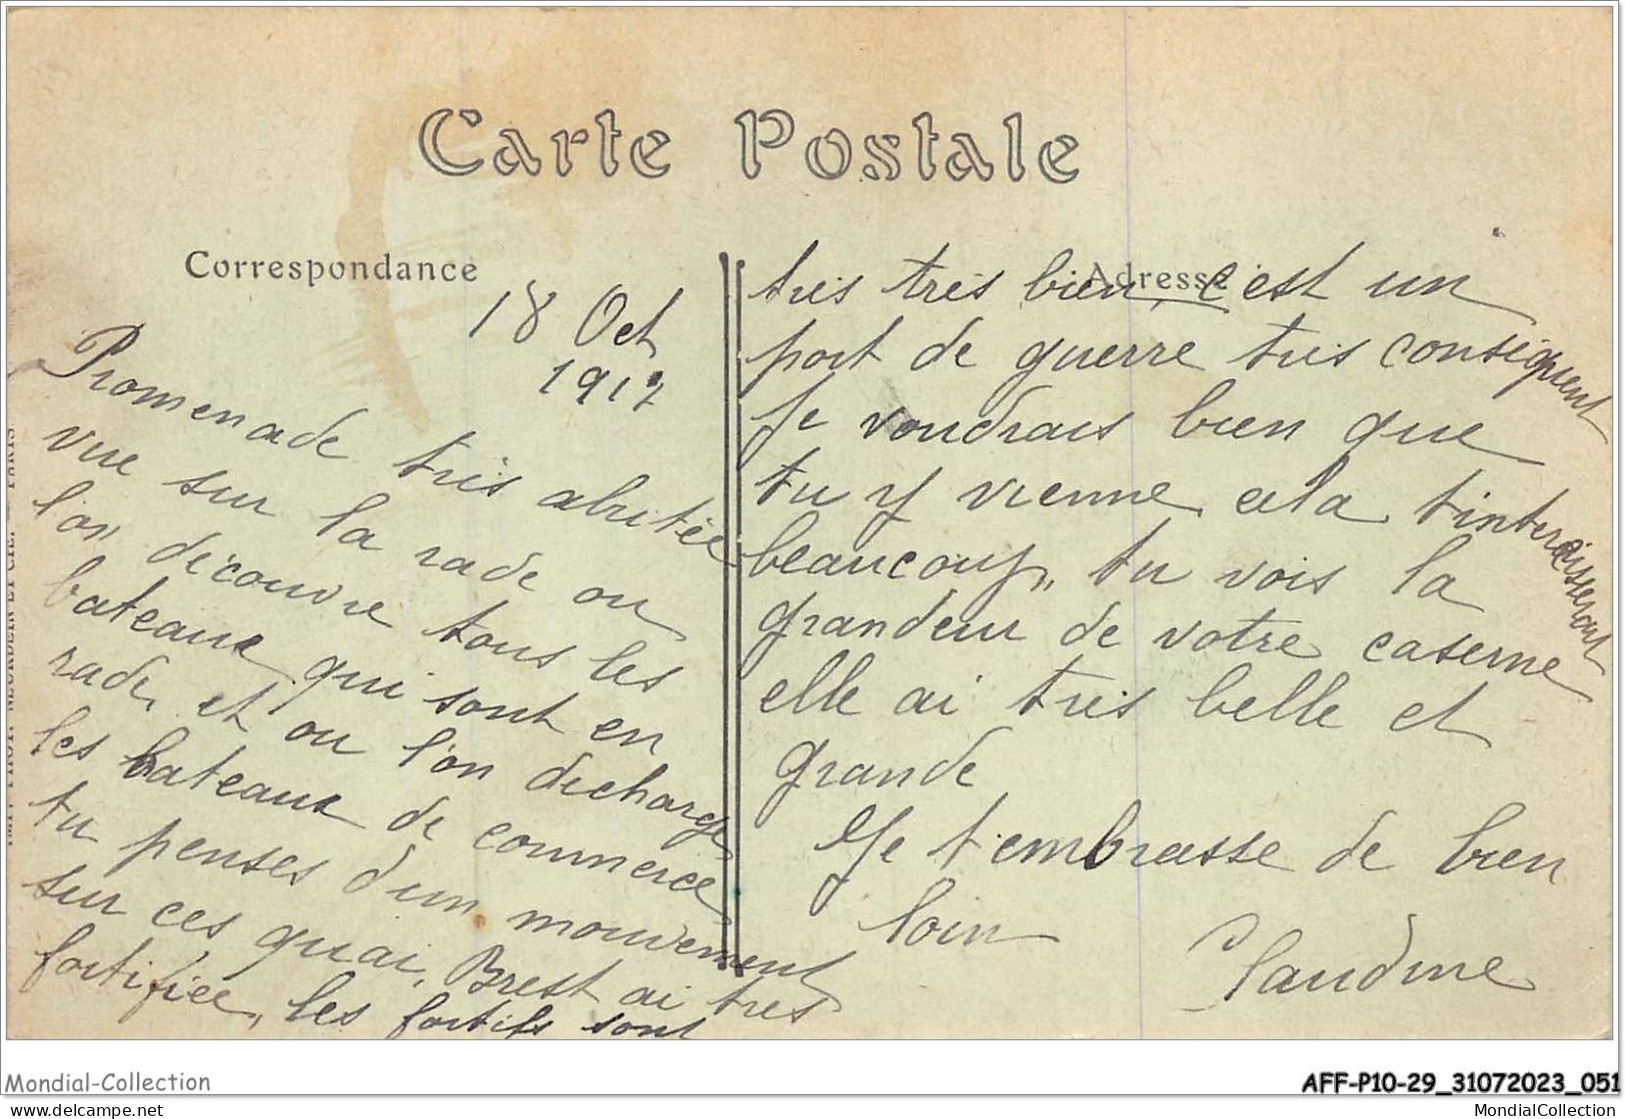 Carte Postale
Correspondance
18 Oct
1917
Promenade très abritée
vue sur la rade ou
l'on découvre tous les
bateaux qui sont en
rade, et ou l'on décharge
les bateaux de commerce
tu penses d'un mouvement
sur ces quai, Brest ai tres
fortifiee, les fortifs sont
Adresse
très très bien, c'est un
port de guerre très conséquent
Je voudrais bien que
tu y vienne cela t'interaisserait
beaucoup, tu vois la
grandeur de votre caserne
elle ai très belle et
grande
Je t'embrasse de bien
loin
Claudine
Mondial-Collection
AFF-P10-29_31072023_051
https://www.delcampe.net/store/mondial-collection
MondialCollection